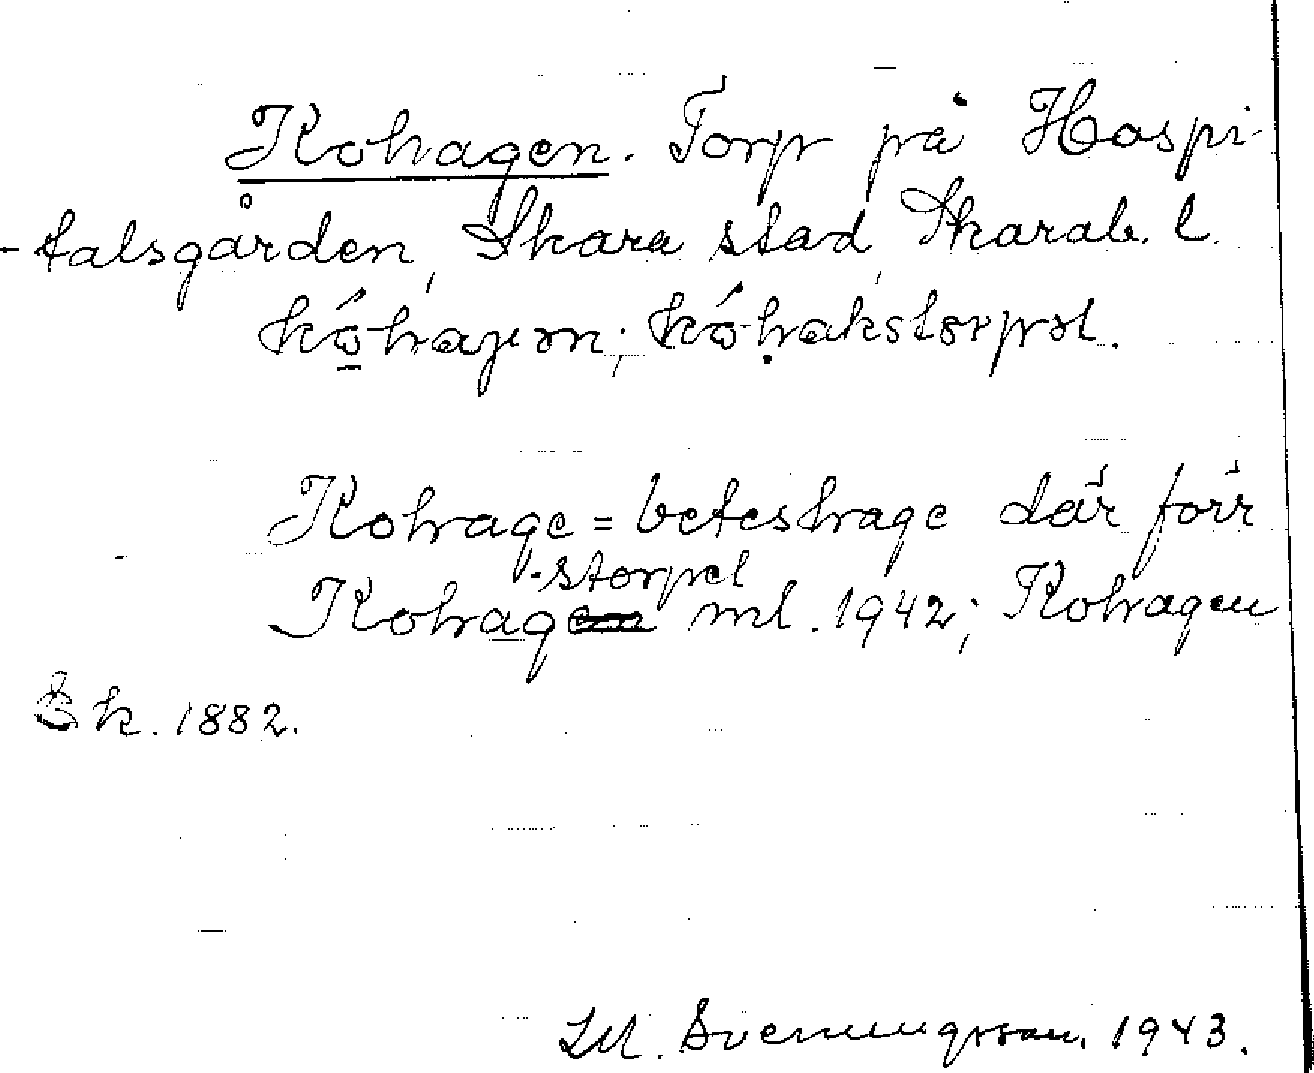 Kohagen. Torp på Hospi-
-talsgården, Skara stad, Skarab. l.
kóhajen; kóhakstorpet.
Kohage = beteshage där förr
-storpet
Kohagen ml. 1942; Kohagen
Sk. 1882.
M. Svenningsson. 1943.